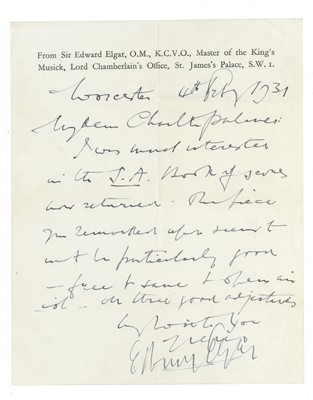 From Sir Edward Elgar, O.M., K.C.V.O., Master of the King's
Musick, Lord Chamberlain's Office, St. James's Palace, S.W. 1.
Worcester 4th Feby 1931
My dear Charlton Palmer:
I was most interested
in the S.A. Book of
now returned. The piece
you remarked upon seems to
me to be particularly good
— free & sane & open air
ish — all three good adjectives
you
Edward Elgar